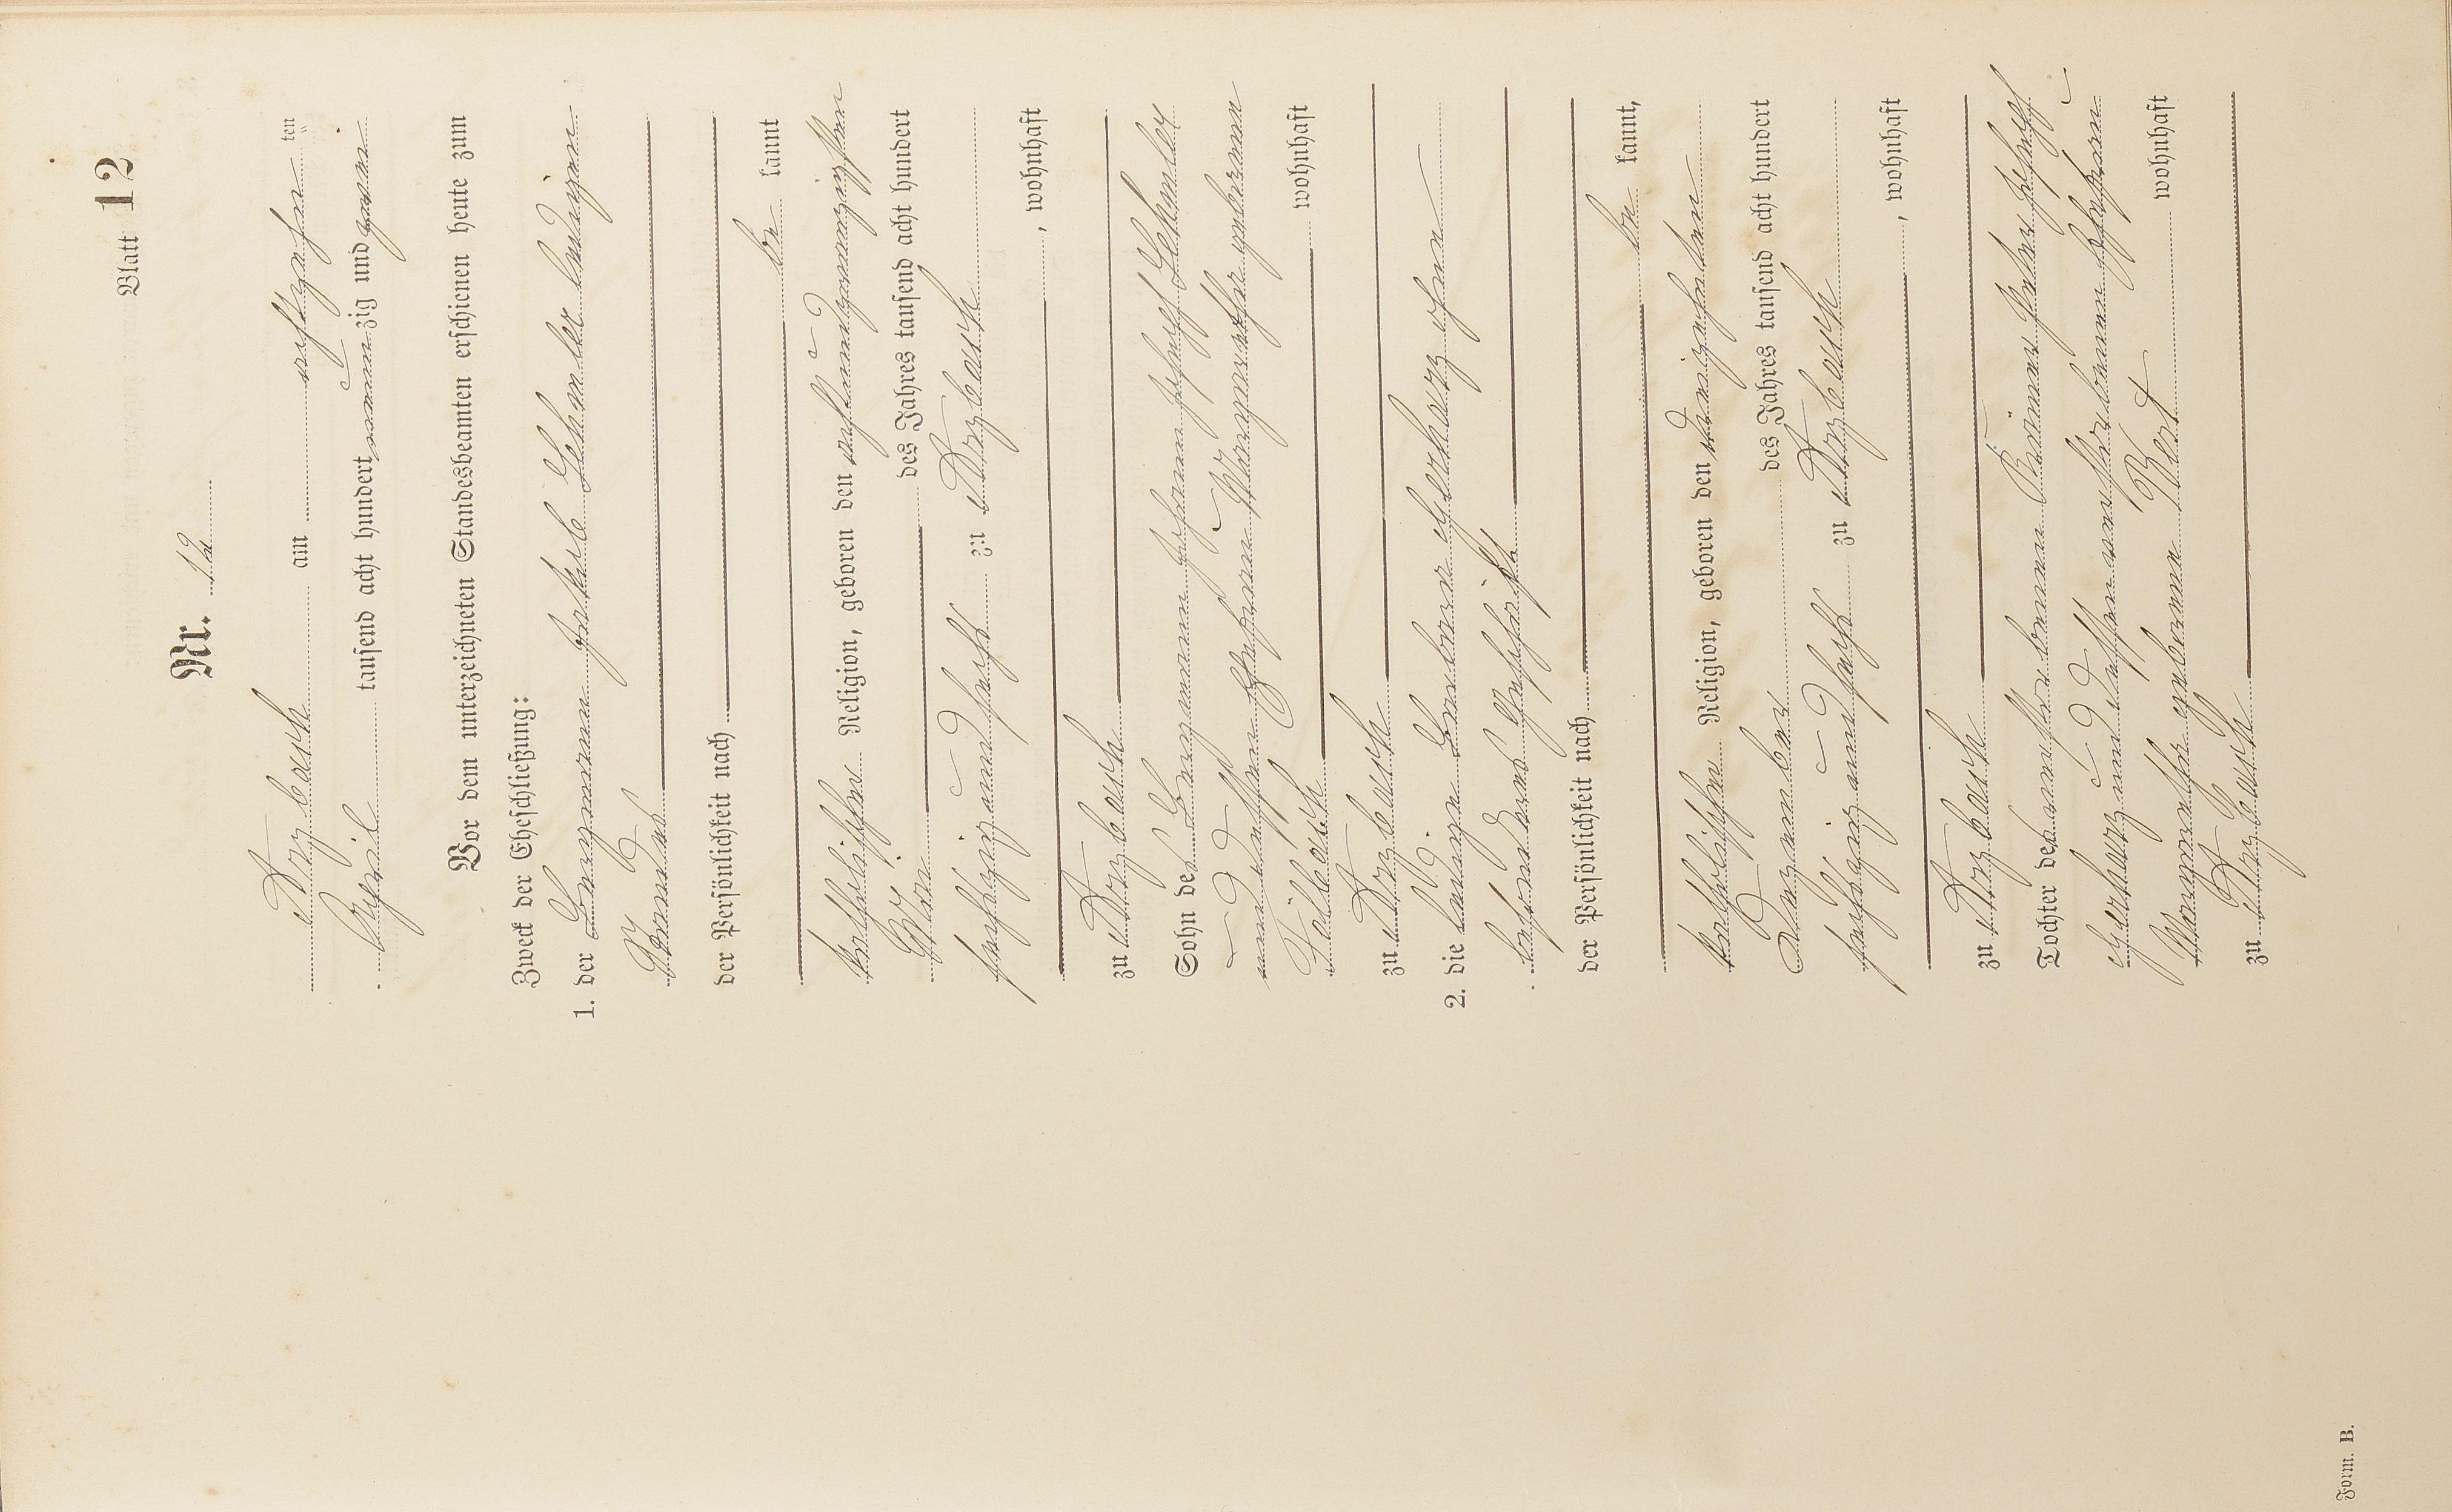 Blatt 12
Nr. 12
Arzbach am achtzehn ten
April tausend acht hundert neunzig und zwei
Vor dem unterzeichneten Standesbeamten erschienen heute zum
Zweck der Eheschließung:
1. der Bergmann Jakob Lehmler ledigen
Standes
der Persönlichkeit nach
be kannt
katholischer Religion, geboren den achtundzwanzigsten
März des Jahres tausend acht hundert
sechszig und sechs zu Arzbach
, wohnhaft
zu Arzbach
Sohn des Bergmann Johann Joseph Lehmler
und dessen Ehefrau Margarethe geborene
wohnhaft
zu Arzbach
2. die ledige Barbara Gerharz ohne
besonderes Geschäft
der Persönlichkeit nach
be kannt,
katholischer Religion, geboren den dreizehnten
Dezember des Jahres tausend acht hundert
sechszig und sechs zu Arzbach
, wohnhaft
zu Arzbach
Tochter des verstorbenen Krämer Peter Joseph
Gerharz und dessen verstorbenen Ehefrau
Margaretha geborene
wohnhaft
zu Arzbach
Form. B.